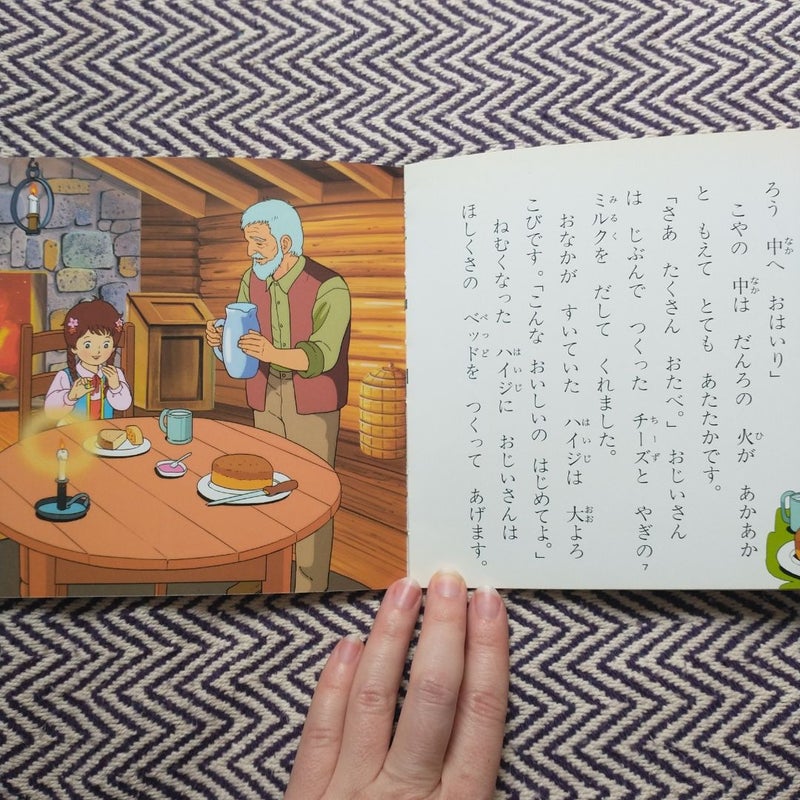 ろう 中へ おはいり」
こやの 中は だんろの 火が あかあか
と もえて とても あたたかです。
「さあ たくさん おたべ。」 おじいさん
は じぶんで つくった チーズと やぎの
ミルクを だして くれました。
おなかが すいていた ハイジは 大よろ
こびです。「こんな おいしいの はじめてよ。」
ねむくなった ハイジに おじいさんは
ほしくさの ベッドを つくって あげます。
7